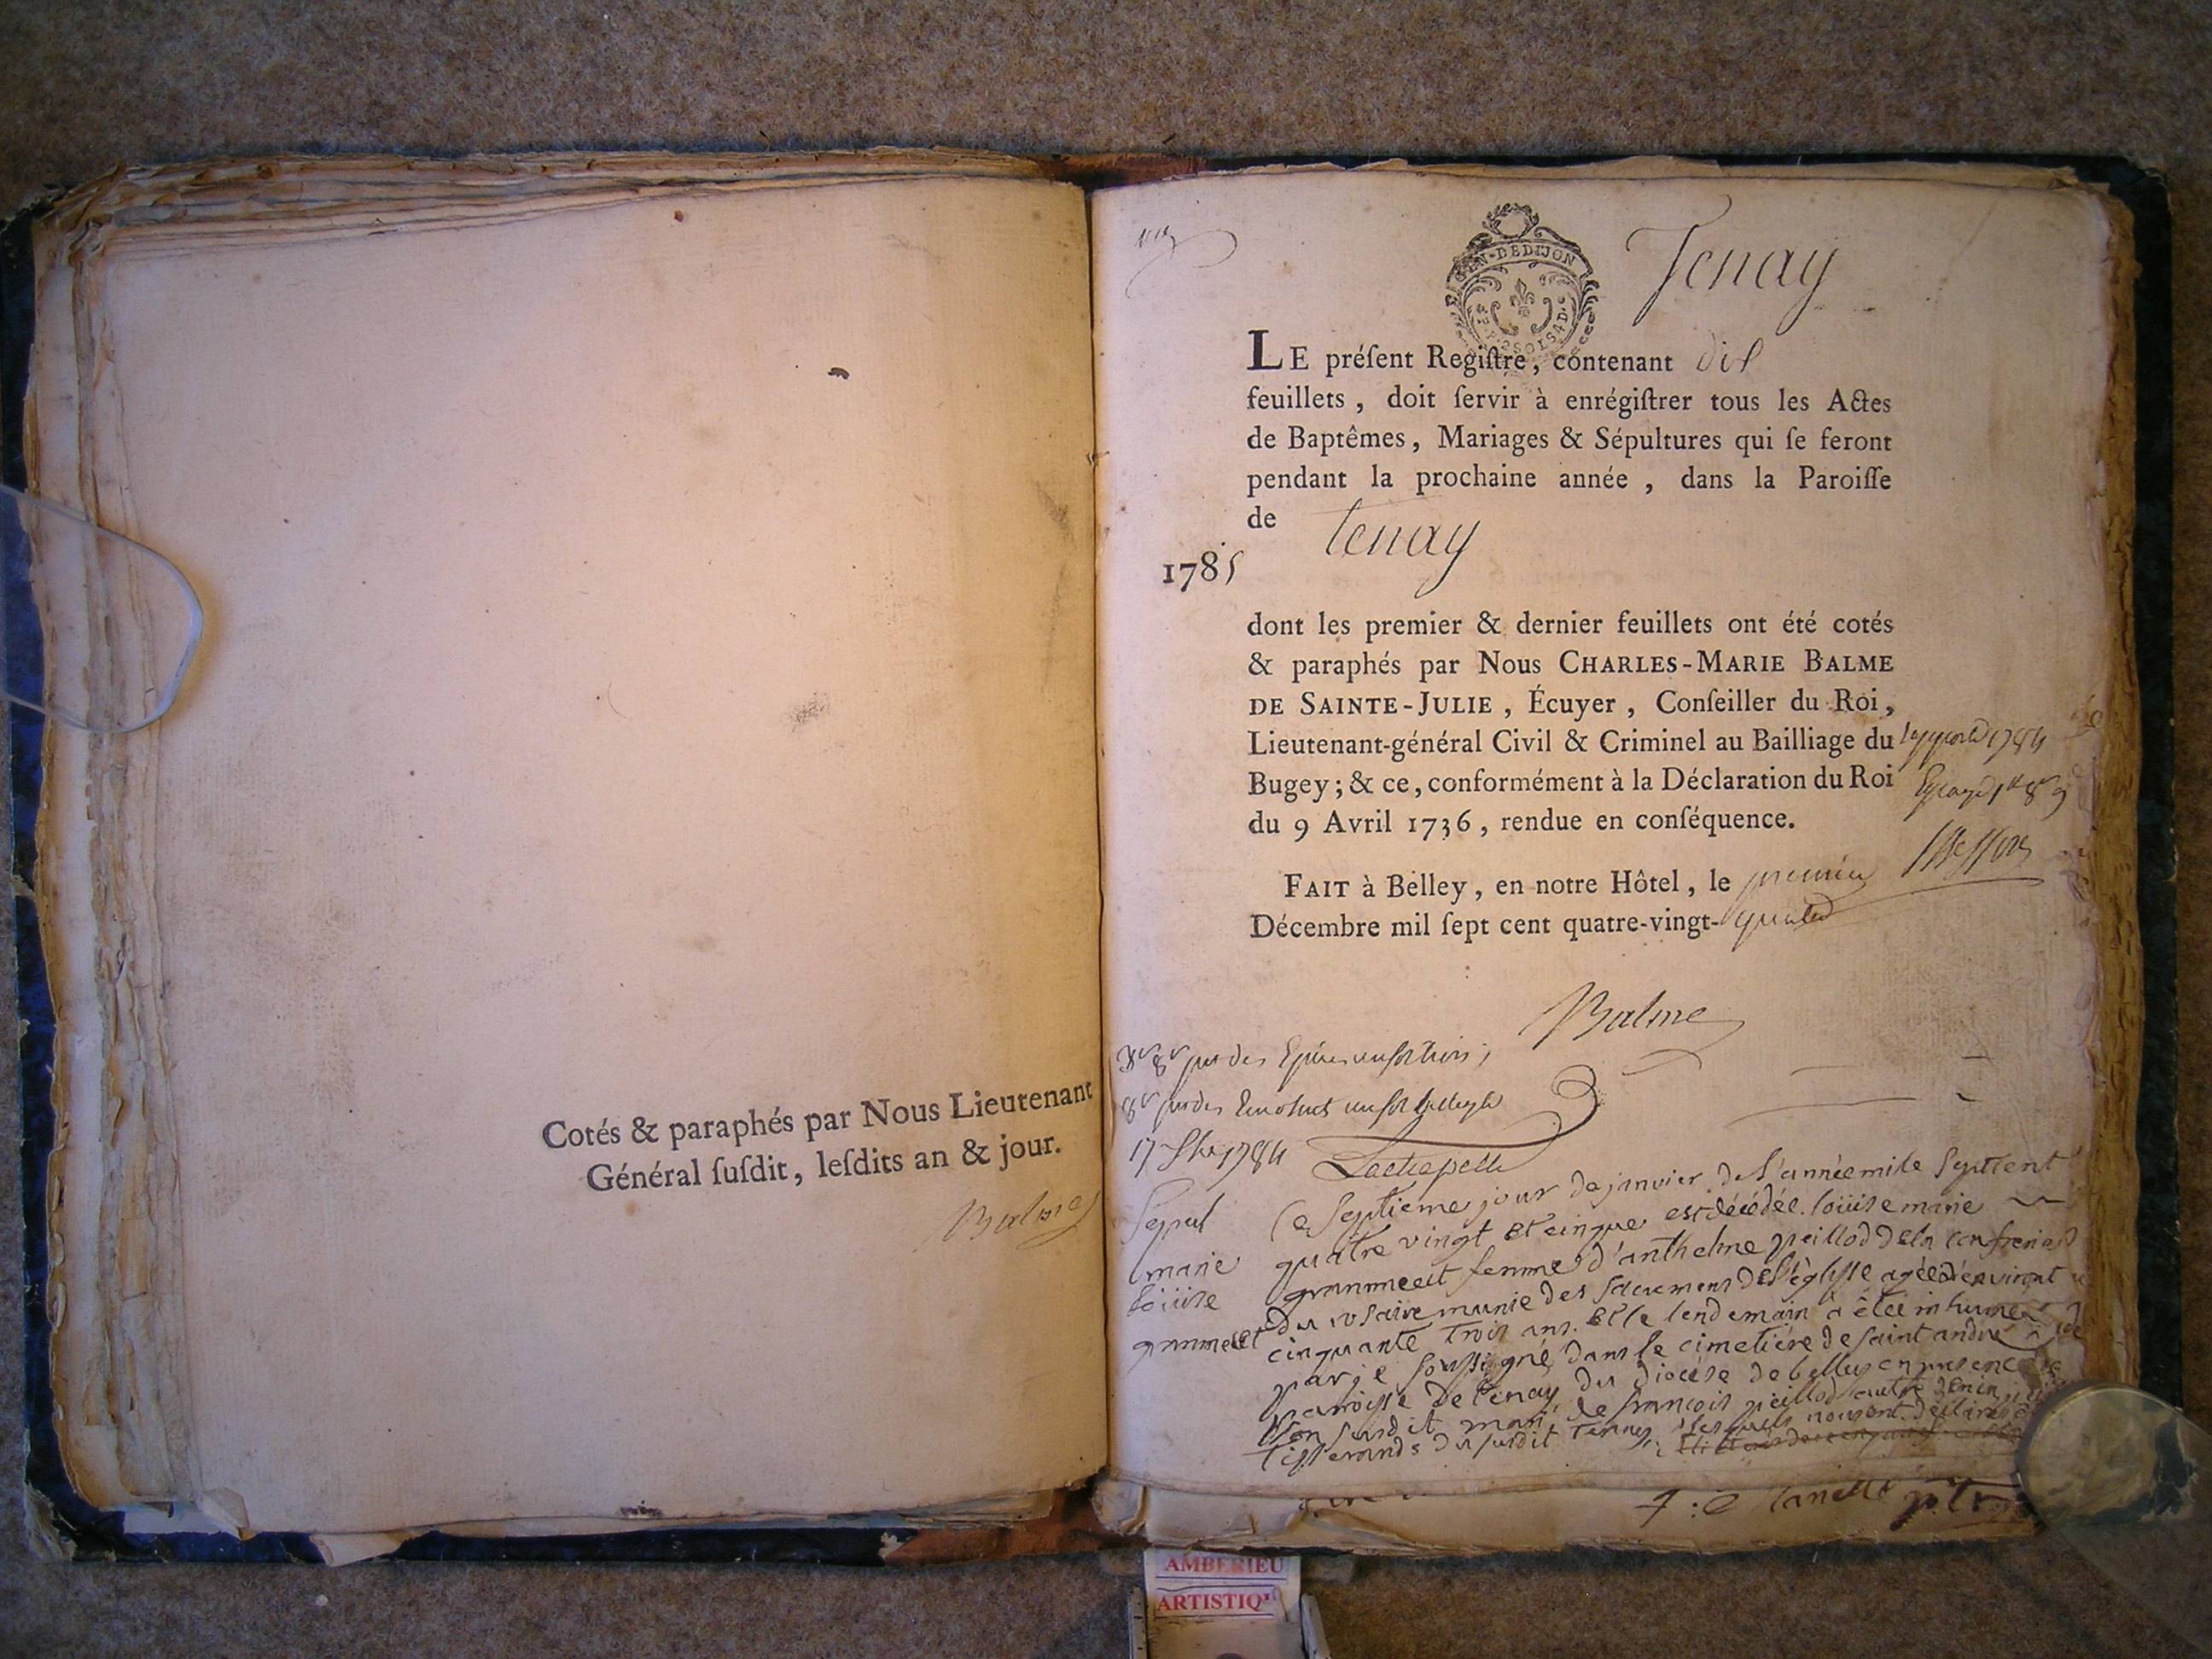 Cotés & paraphés par Nous Lieutenant
Général ſuſdit, leſdits an & jour.
Balme
GEN-DEDIJON
Tenay
LE préſent Regiſtre, contenant dix
feuillets, doit ſervir à enrégiſtrer tous les Actes
de Baptêmes, Mariages & Sépultures qui ſe feront
pendant la prochaine année, dans la Paroiſſe
de Tenay
1785
dont les premier & dernier feuillets ont été cotés
& paraphés par Nous CHARLES-MARIE BALME
DE SAINTE-JULIE, Écuyer, Conſeiller du Roi,
Lieutenant-général Civil & Criminel au Bailliage du
Bugey; & ce, conformément à la Déclaration du Roi
du 9 Avril 1736, rendue en conſéquence.
1784
FAIT à Belley, en notre Hôtel, le premier
Décembre mil ſept cent quatre-vingt-quatre
Balme
1784 Lachapelle
Sepul
marie
loüise
grammelet
Ce septieme jour de janvier de l'année mile septcent
quatre vingt et cinque est décédée loüise marie
femme d'anthelme peillod de la confrerie
du rosaire munie des sacremens de l'églisse agée d'environt
cinquante trois ans. et le lendemain a étée inhumee
par je soussigné dans le cimetiére de saint andré
paroisse de tenay du diocése de belley en presence de
son susdit mari, de francois peillod
tisserands du susdit tenay, lesquels nous ont déclaré
AMBERIEU
ARTISTIQ